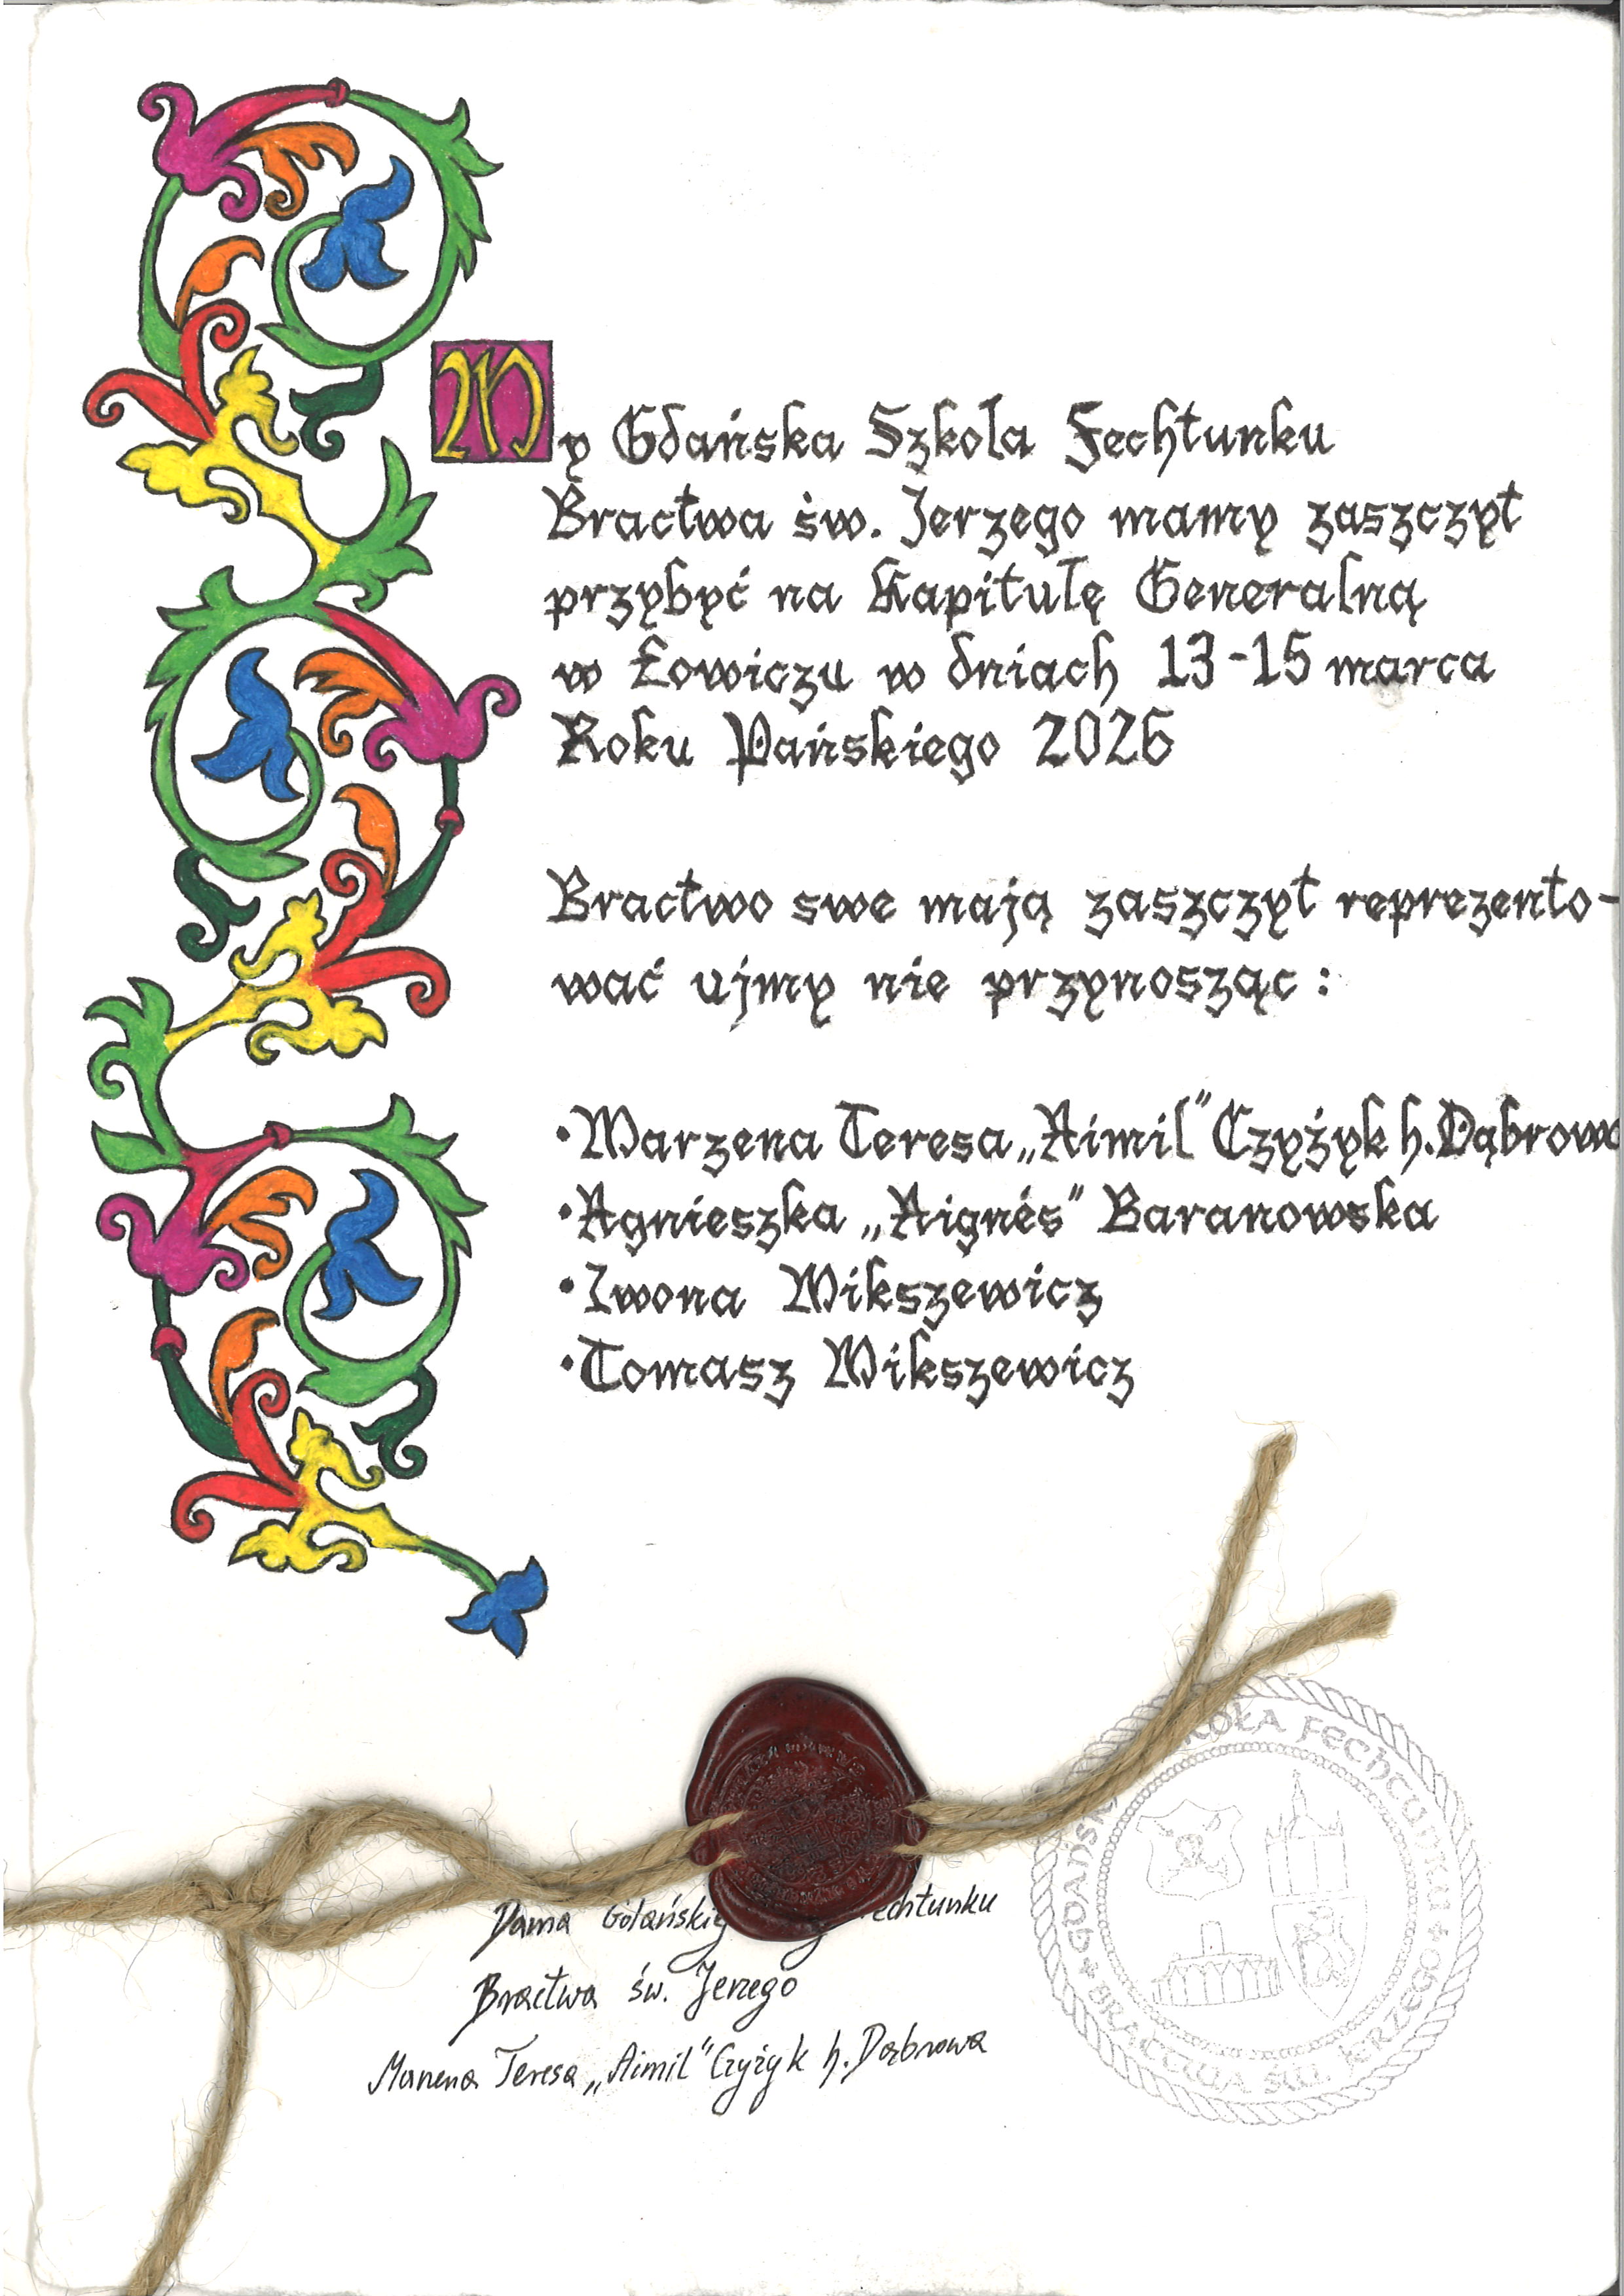 My Gdańska Szkoła Fechtunku
Bractwa św. Jerzego mamy zaszczyt
przybyć na Kapitułę Generalną
w Łowiczu w dniach 13-15 marca
Roku Pańskiego 2026
Bractwo swe mają zaszczyt reprezento-
wać ujmy nie przynosząc:
•Marzena Teresa „Aimil" Czyżyk h. Dąbrowa
•Agnieszka „Aignés" Baranowska
•Iwona Mikszewicz
•Tomasz Mikszewicz
Dama
Bractwa św. Jerzego
Marzena Teresa „Aimil" Czyżyk h. Dąbrowa
FECHTUNKU
BRACTWA ŚW. JERZEGO